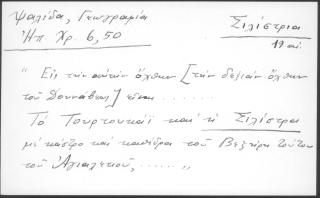 Ψαλίδα, Γεωγραφία
Ἠπ. Χρ. 6, 50
Σιλίστρια
19 αἰ.
"Εἰς τὴν αὐτὴν ὄχθην [τὴν δεξιὰν ὄχθην
τοῦ Δουνάβεως] εἶναι .......
Τὸ Τουρτουκάϊ καὶ ἡ Σιλίστρα
μὲ κάστρο καὶ καθέδρα τοῦ Βεζίρη τούτου
τοῦ Ἀγιαλετιοῦ, ...... "